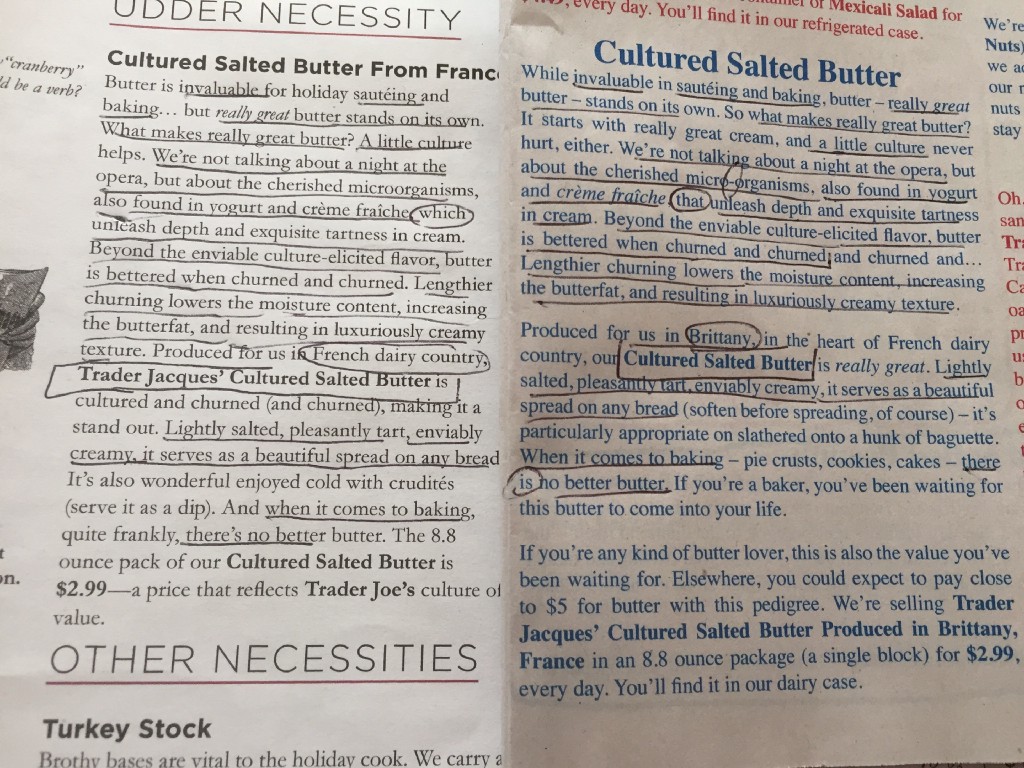 UDDER NECESSITY
"cranberry"
d be a verb?
Cultured Salted Butter From Franc
Butter is invaluable for holiday sautéing and
baking… but really great butter stands on its own.
What makes really great butter? A little culture
helps. We're not talking about a night at the
opera, but about the cherished microorganisms,
also found in yogurt and crème fraîche, which
unleash depth and exquisite tartness in cream.
Beyond the enviable culture-elicited flavor, butter
is bettered when churned and churned. Lengthier
churning lowers the moisture content, increasing
the butterfat, and resulting in luxuriously creamy
texture. Produced for us in French dairy country,
Trader Jacques' Cultured Salted Butter is
cultured and churned (and churned), making it a
stand out. Lightly salted, pleasantly tart, enviably
creamy, it serves as a beautiful spread on any bread
It's also wonderful enjoyed cold with crudités
(serve it as a dip). And when it comes to baking,
quite frankly, there's no better butter. The 8.8
ounce pack of our Cultured Salted Butter is
$2.99—a price that reflects Trader Joe's culture of
value.
t
on.
OTHER NECESSITIES
Turkey Stock
Brothy bases are vital to the holiday cook. We carry a
of Mexicali Salad for
, every day. You'll find it in our refrigerated case.
Cultured Salted Butter
While invaluable in sautéing and baking, butter – really great
butter – stands on its own. So what makes really great butter?
It starts with really great cream, and a little culture never
hurt, either. We're not talking about a night at the opera, but
about the cherished micro-organisms, also found in yogurt
and crème fraîche that unleash depth and exquisite tartness
in cream. Beyond the enviable culture-elicited flavor, butter
is bettered when churned and churned, and churned and…
Lengthier churning lowers the moisture content, increasing
the butterfat, and resulting in luxuriously creamy texture.
Produced for us in Brittany, in the heart of French dairy
country, our Cultured Salted Butter is really great. Lightly
salted, pleasantly tart, enviably creamy, it serves as a beautiful
spread on any bread (soften before spreading, of course) – it's
particularly appropriate on slathered onto a hunk of baguette.
When it comes to baking – pie crusts, cookies, cakes – there
is no better butter. If you're a baker, you've been waiting for
this butter to come into your life.
If you're any kind of butter lover, this is also the value you've
been waiting for. Elsewhere, you could expect to pay close
to $5 for butter with this pedigree. We're selling Trader
Jacques' Cultured Salted Butter Produced in Brittany,
France in an 8.8 ounce package (a single block) for $2.99,
every day. You'll find it in our dairy case.
We're
Nuts)
we a
our r
nuts
stay
Oh.
san
Tra
Tra
Ca
oa
pr
us
b
o
e